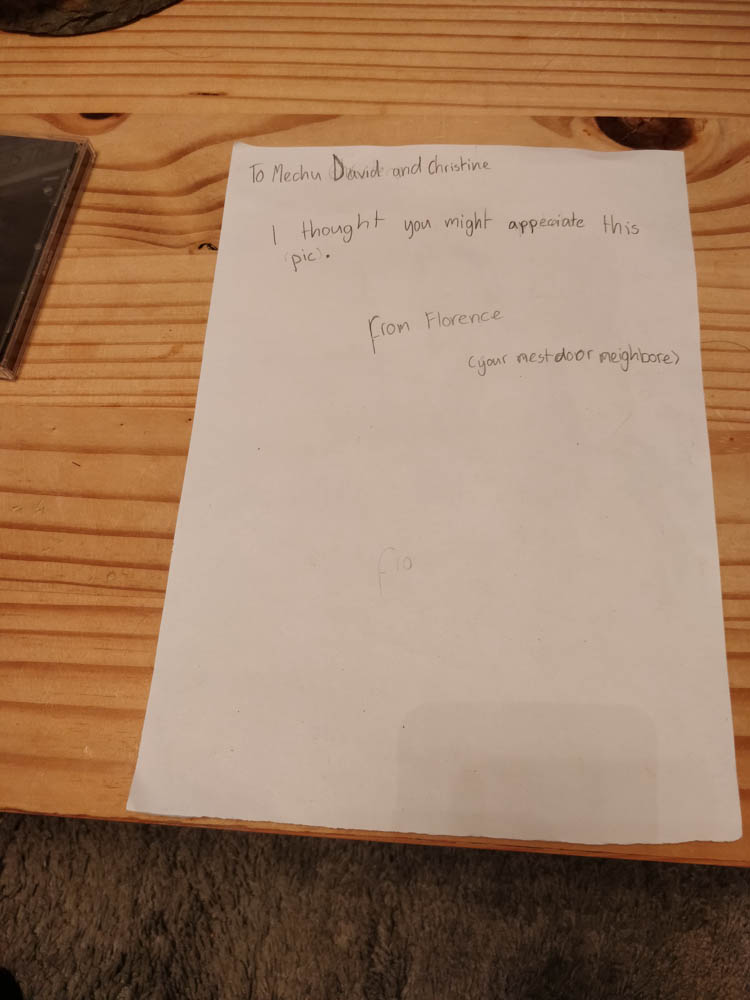 To Mechu David and Christine
I thought you might appeciate this
(pic).
from Florence
(your nestdoor neighbore)
fro